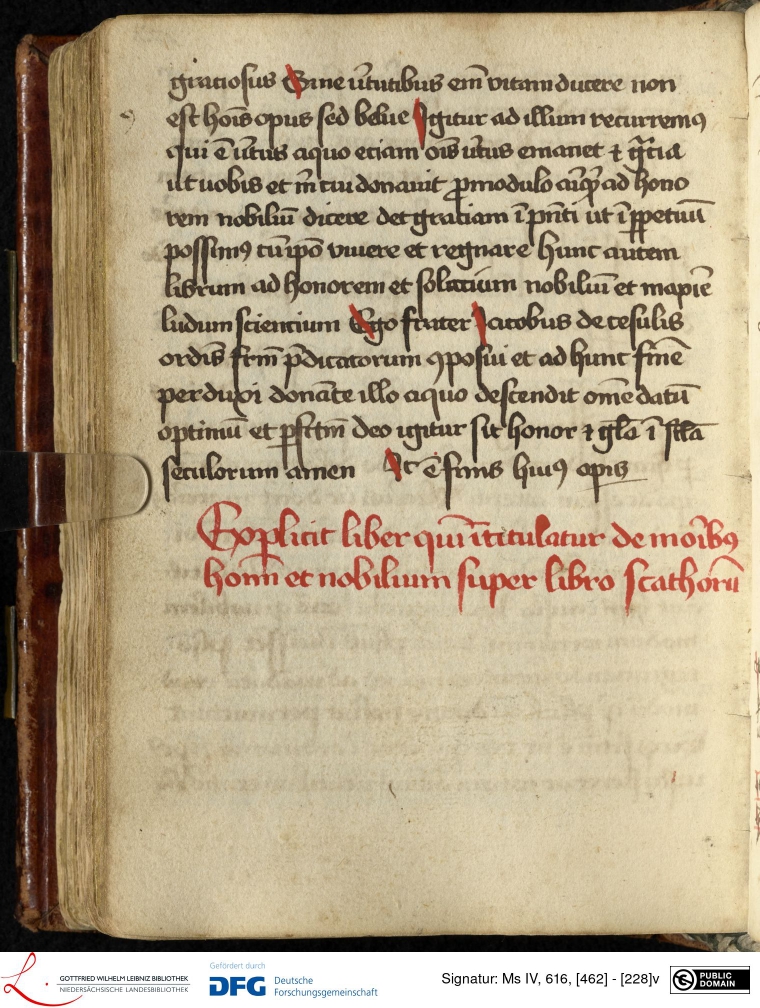 graciosus Sine v̄tutibus em̄ vitam ducere non
est hoīs opus sed belue Igitur ad illum recurremꝯ
qui ē v̄tus a quo eciam oīs v̄tus emanet ⁊ gr̄cia
ut uobis et m̄ donauit ꝓ modulo ad hono
rem nobiliū dicere det graciam ī pn̄ti ut ī ꝑpetuū
possimꝯ cū ip̄o viuere et regnare hunc autem
librum ad honorem et solacium nobiliū et maxīe
ludum sciencium Ego frater Jacobus de cesulis
ordīs frm̄ p̄dicatorum ꝯposui et ad hunc fīnē
perduxi donāte illo a quo descendit om̄e datū
optimū et ꝑfctm̄ deo igitur sit honor ⁊ glā ī sclā
seculorum amen Et ē finis huiꝯ opis
Explicit liber qui ītitulatur de moībꝯ
hom̄ et nobilium super libro scathorū
GOTTFRIED WILHELM LEIBNIZ BIBLIOTHEK
NIEDERSÄCHSISCHE LANDESBIBLIOTHEK
Gefördert durch
DFG Deutsche
Forschungsgemeinschaft
Signatur: Ms IV, 616, [462] - [228]v
PUBLIC
DOMAIN